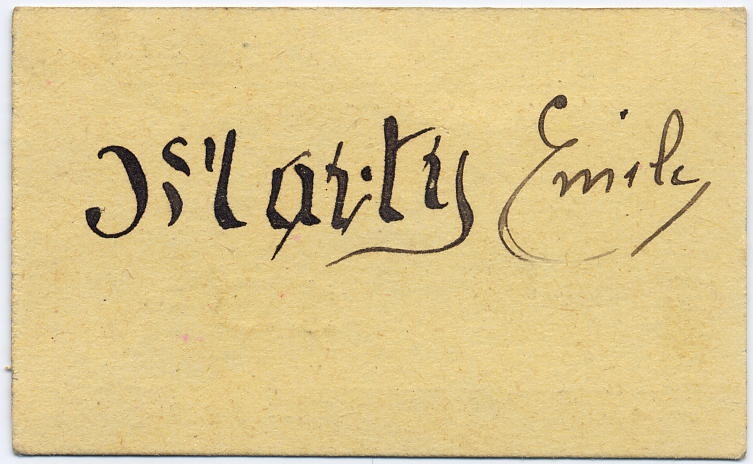 Marty Emile